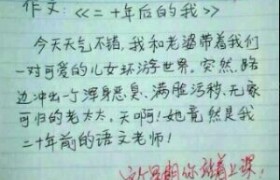 作文:《二十年后的我》
今天天气不错,我和老婆带着我们
一对可爱的儿女环游世界。突然,路
边冲出一个浑身恶臭、满脸污秽、无家
可归的老太太,天啊!她竟然是我
二十年前的语文老师!
站着上课!